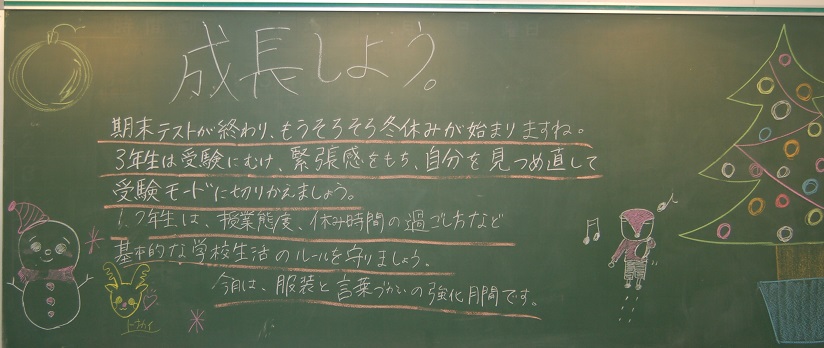 成長しよう。
期末テストが終わり、もうそろそろ冬休みが始まりますね。
3年生は受験にむけ、緊張感をもち、自分を見つめ直して
受験モードに切りかえましょう。
1、2年生は、授業態度、休み時間の過ごし方など
基本的な学校生活のルールを守りましょう。
今月は、服装と言葉づかいの強化月間です。
トナカイ